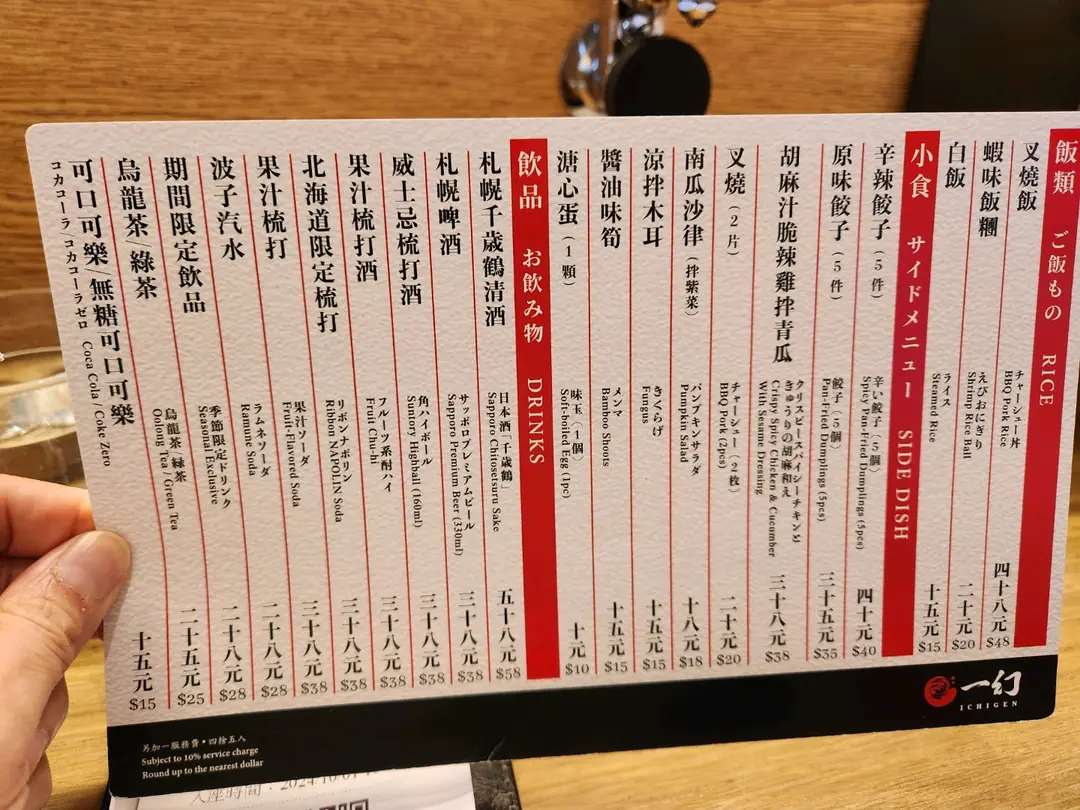 飯類 ご飯もの RICE
叉燒飯
チャーシュー丼
BBQ Pork Rice
四十八元
$48
蝦味飯糰
えびおにぎり
Shrimp Rice Ball
二十元
$20
白飯
ライス
Steamed Rice
十五元
$15
小食 サイドメニュー SIDE DISH
辛辣餃子（5件）
辛い餃子（5個）
Spicy Pan-Fried Dumplings (5pcs)
四十元
$40
原味餃子（5件）
餃子（5個）
Pan-Fried Dumplings (5pcs)
三十五元
$35
胡麻汁脆辣雞拌青瓜
クリスピースパイシーチキンと
きゅうりの胡麻和え
Crispy Spicy Chicken & Cucumber
With Sesame Dressing
三十八元
$38
叉燒（2片）
チャーシュー（2枚）
BBQ Pork (2pcs)
二十元
$20
南瓜沙律（拌紫菜）
パンプキンサラダ
Pumpkin Salad
十八元
$18
涼拌木耳
きくらげ
Fungus
十五元
$15
醬油味筍
メンマ
Bamboo Shoots
十五元
$15
溏心蛋（1顆）
味玉（1個）
Soft-boiled Egg (1pc)
十元
$10
飲品 お飲み物 DRINKS
札幌千歲鶴清酒
日本酒「千歳鶴」
Sapporo Chitosetsuru Sake
五十八元
$58
札幌啤酒
サッポロプレミアムビール
Sapporo Premium Beer (330ml)
三十八元
$38
威士忌梳打酒
角ハイボール
Suntory Highball (160ml)
三十八元
$38
果汁梳打酒
フルーツ系酎ハイ
Fruit Chu-hi
三十八元
$38
北海道限定梳打
リボンナポリン
Ribbon NAPOLIN Soda
三十八元
$38
果汁梳打
果汁ソーダ
Fruit-Flavored Soda
三十八元
$38
波子汽水
ラムネソーダ
Ramune Soda
二十八元
$28
期間限定飲品
季節限定ドリンク
Seasonal Exclusive
二十八元
$28
烏龍茶/綠茶
烏龍茶/緑茶
Oolong Tea / Green Tea
二十五元
$25
可口可樂/無糖可口可樂
コカコーラ コカコーラゼロ Coca Cola / Coke Zero
十五元
$15
一幻
ICHIGEN
另加一服務費・四捨五入
Subject to 10% service charge
Round up to the nearest dollar
入座時間：2024/10/01